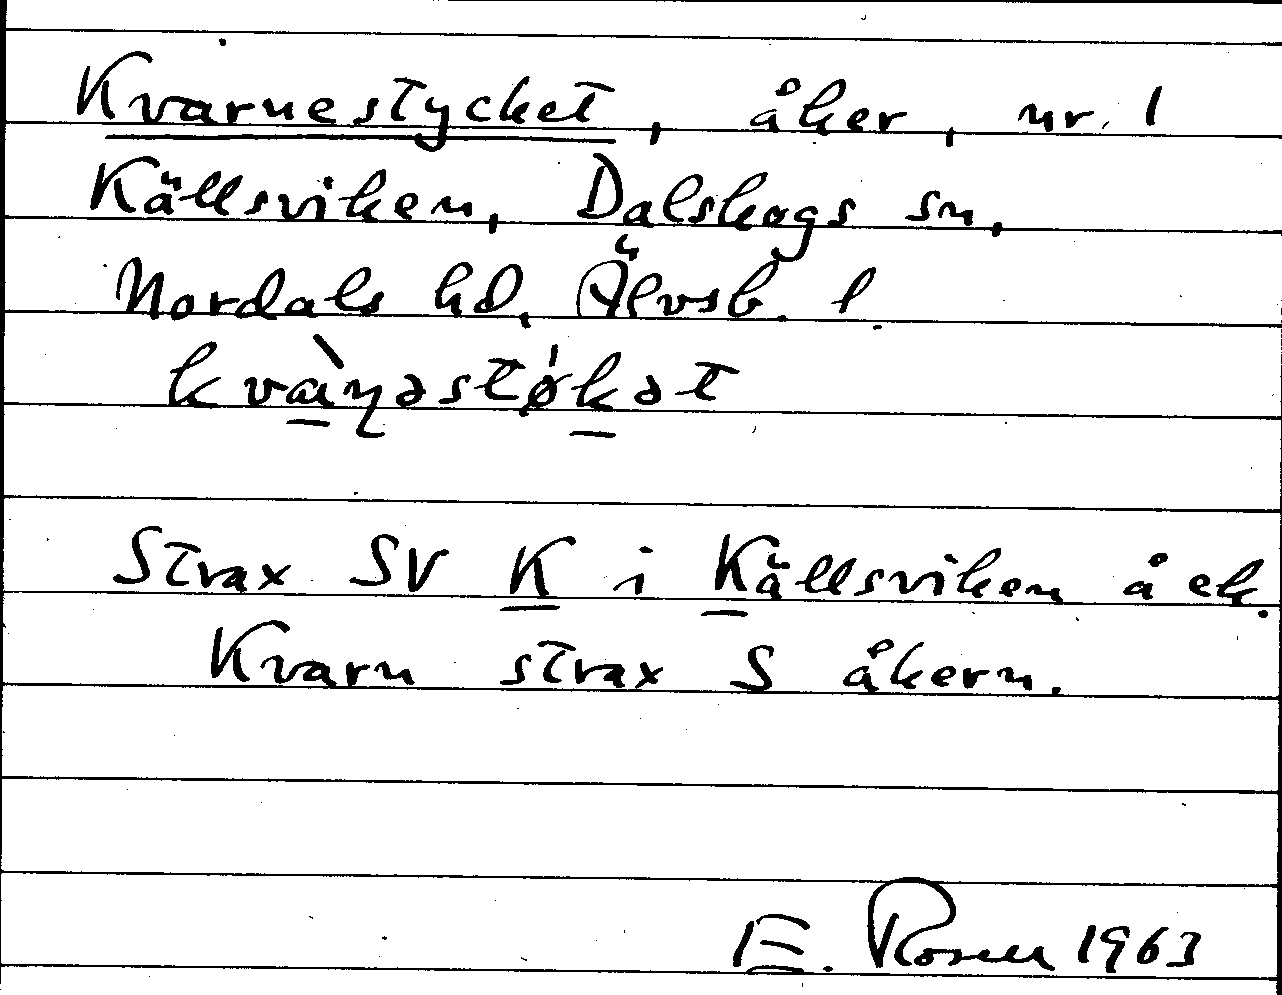 Kvarnestycket, åker, nr. 1
Källsviken, Dalskogs sn,
Nordals hd, Älvsb. l.
Strax SV K i Källsviken å ek.
Kvarn strax S åkern.
E. Rosell 1963